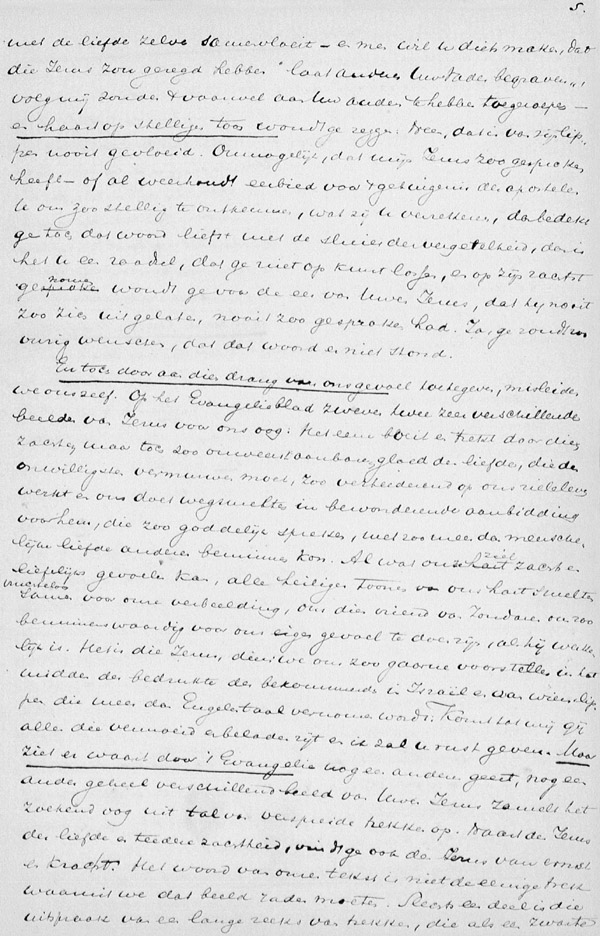 5.
met de liefde zelve samenvloeit – en men wil u diets maken, dat
die Jezus zou gezegd hebben "laat anderen Uw Vader begraven",,
volg mij zonder 't vaarwel aan Uw ander te hebben toegeroepen –
en haast op stelligen toon wordt ge zeggen: Neen, dat is van zijn lip-
pen nooit gevloeid. Onmogelijk, dat mijn Jezus zoo gesproken
heeft – of al weerhoudt eerbied voor 't getuigenis der apostelen
U om zoo stellig te ontkennen, wat zij U verzekeren, dan bedekt
ge toch dat woord liefst met de sluier der vergetelheid, dan is
het U een raadsel, dat ge niet op kunt lossen, en op zijn zachtst
genomen wordt ge voor de eer van Uwen Jezus, dat hij nooit
zoo zich uitgelaten, nooit zoo gesproken had. Ja, ge zoudt
vurig wenschen, dat dat woord er niet stond.
En toch door aan dien drang van ons gevoel toe te geven, misleiden
we onszelf. Op het Evangelieblad zweven twee zeer verschillende
beelden van Jezus voor ons oog: Het een boeit en trekt door dien
zachten, maar toch zoo onweerstaanbaren gloed der liefde, die den
onwilligsten vermurwen moet, zoo verteederend op ons zieleleven
werkt en ons doet wegsmelten in bewonderende aanbidding
voor hem, die zoo goddelijk spreken, met zoo meer dan mensche-
lijke liefde anderen beminnen kon. Al wat onze ziel zachts en
liefelijks gevoelen kan, alle heilige toonen van ons hart smelten
samen voor onze verbeelding, om dien vriend van zondaren zoo
beminnenswaardig voor ons eigen gevoel te doen zijn, als hij waar-
lijk is. Het is die Jezus, dien we ons zoo gaarne voorstellen in het
midden der bedrukten der bekommerden in Israël en van wiens lip-
pen die meer dan Engelentaal vernomen wordt: Komt tot mij gij
allen die vermoeid en beladen zijt en ik zal u rust geven. Maar
ziet er waart door 't Evangelie nog een andere geest, nog een
ander geheel verschillend beeld van Uwen Jezus zamelt het
zoekend oog uit tal van verspreide trekken op. Naast de Jezus
der liefde en teedere zachtheid, vindt ge ook de Jezus van ernst
en kracht. Het woord van onze tekst is niet de eenige trek
waarmit we dat beeld zamelen moeten. Slechts een deel is die
uitspraak van een lange reeks van trekken, die als een zwarte